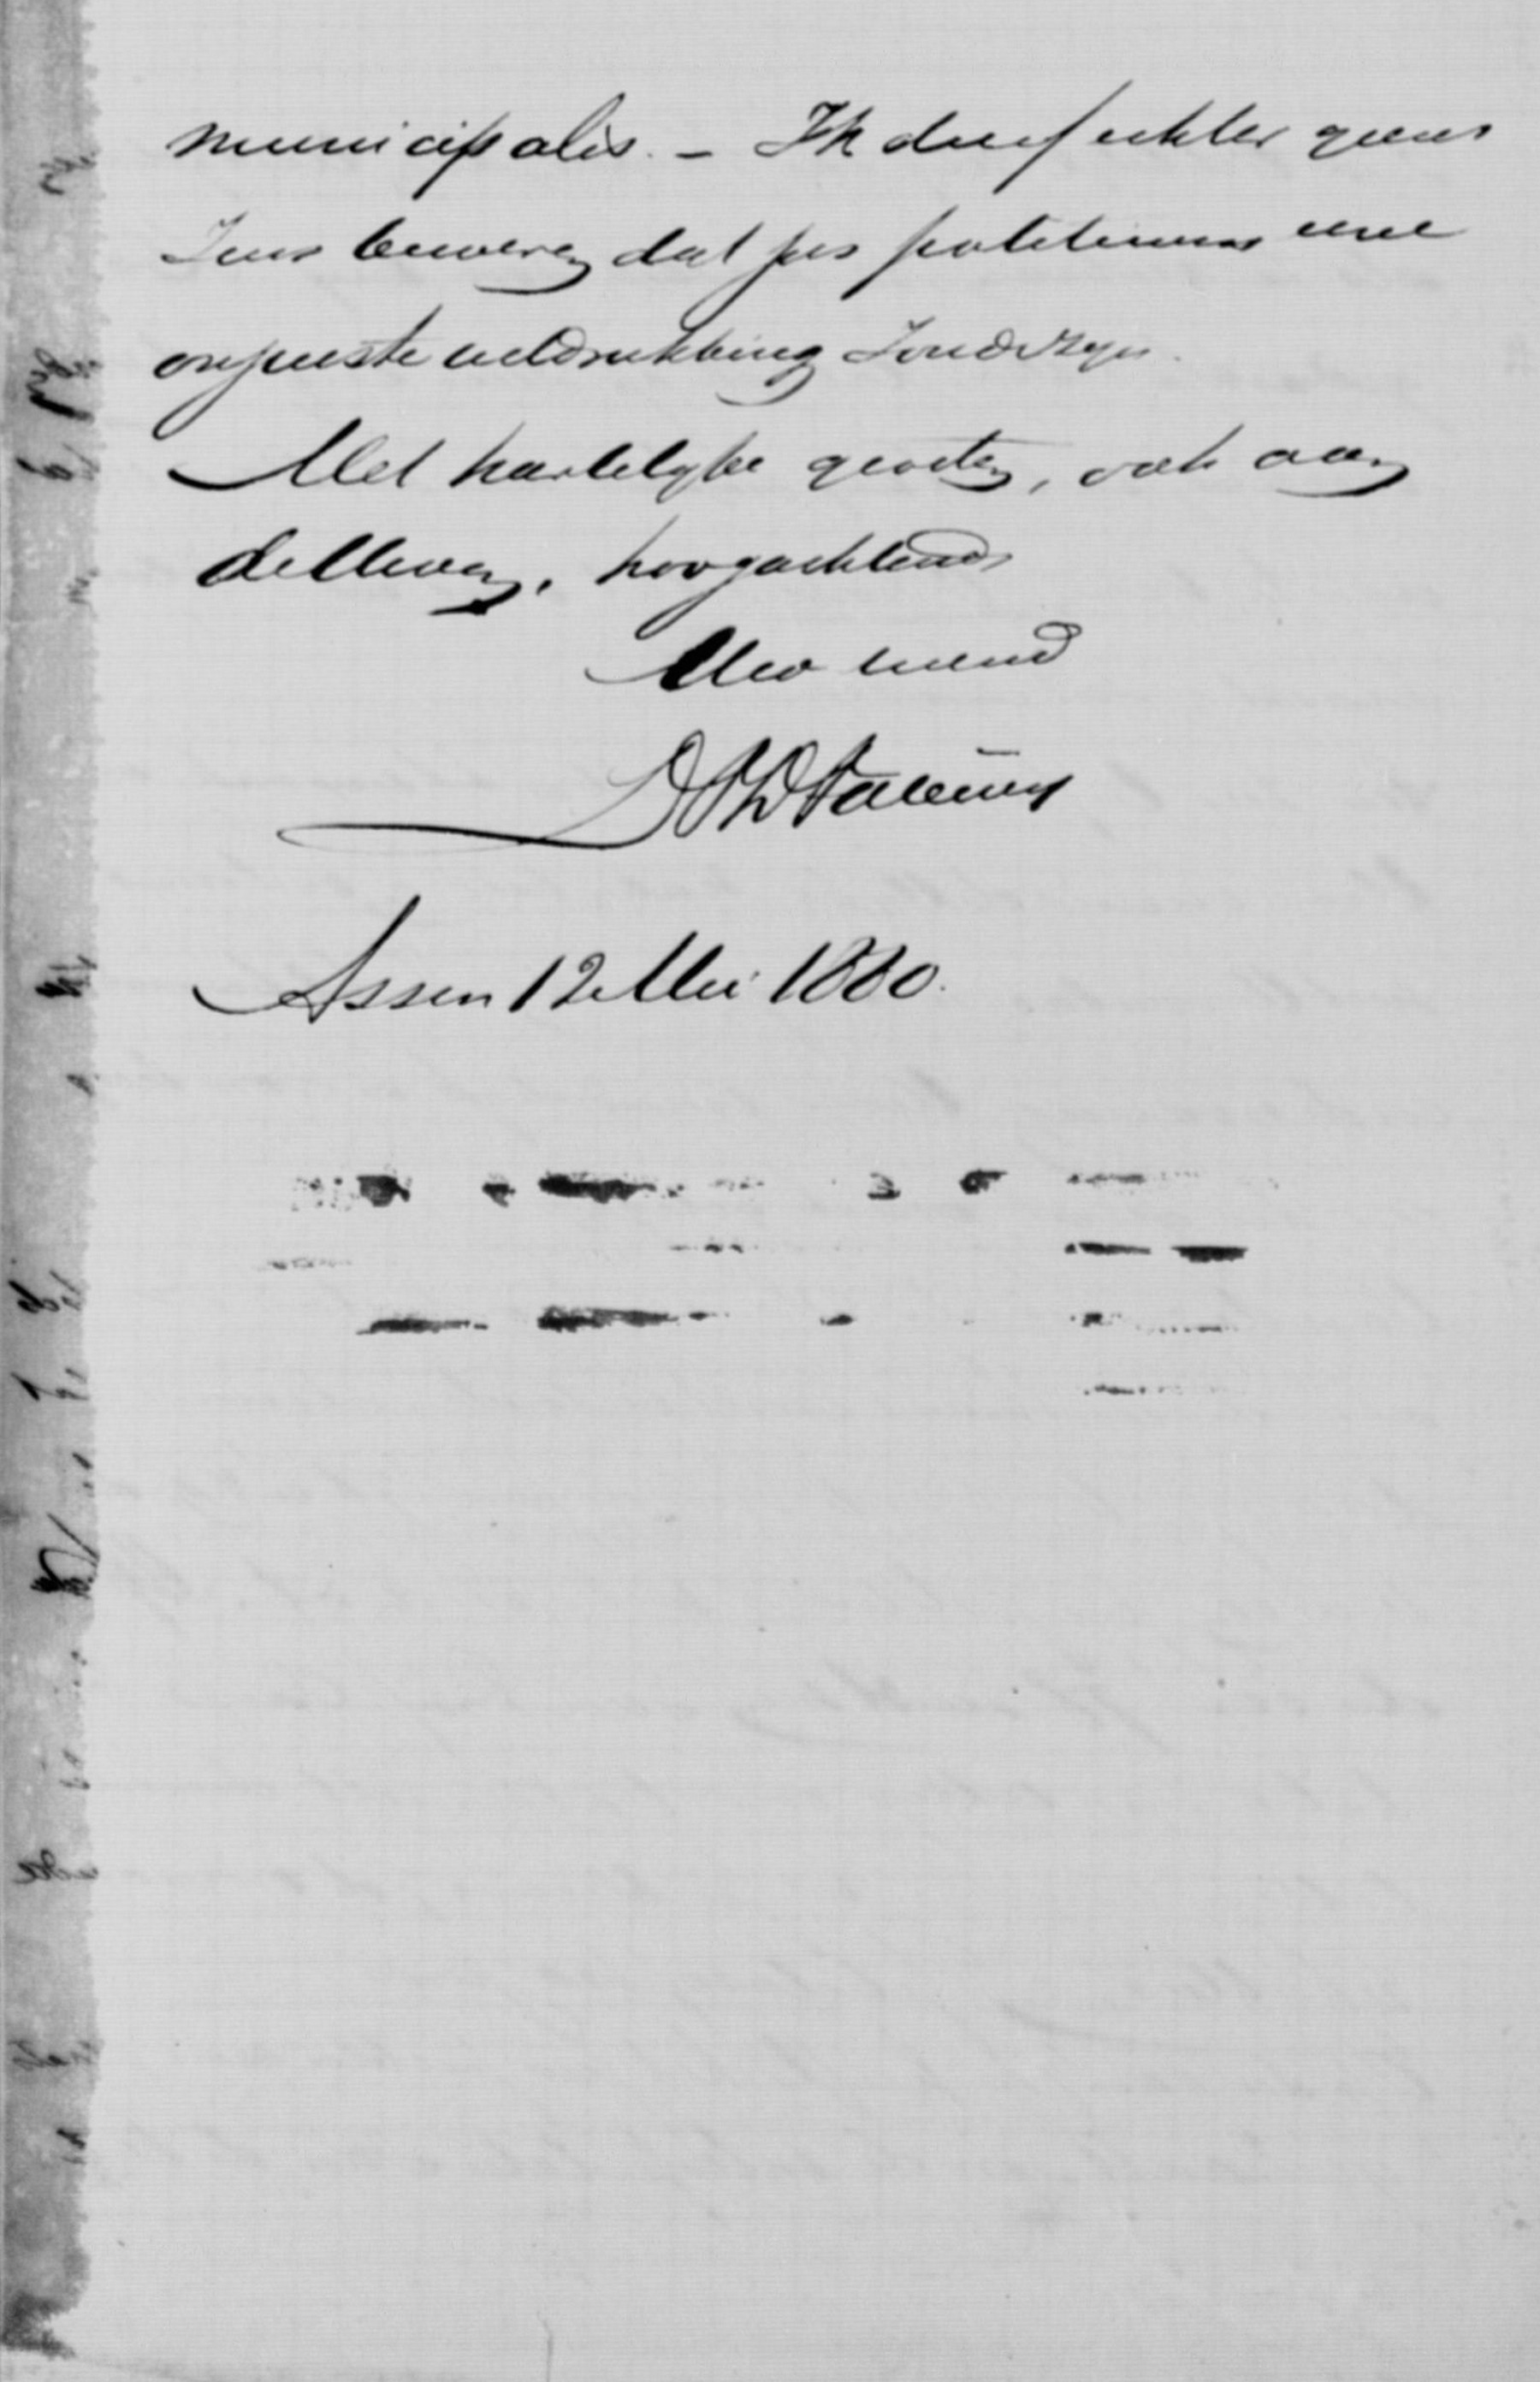 municipalis. – Ik durf echter geens
Zins beweren dat jus patitimus eene
onjuiste uitdrukking Zoude zyn.
Met hartelyke groeten, ook aan
de Uwen, hoogachtend
Uw vriend
Assen 12 Mei 1880.